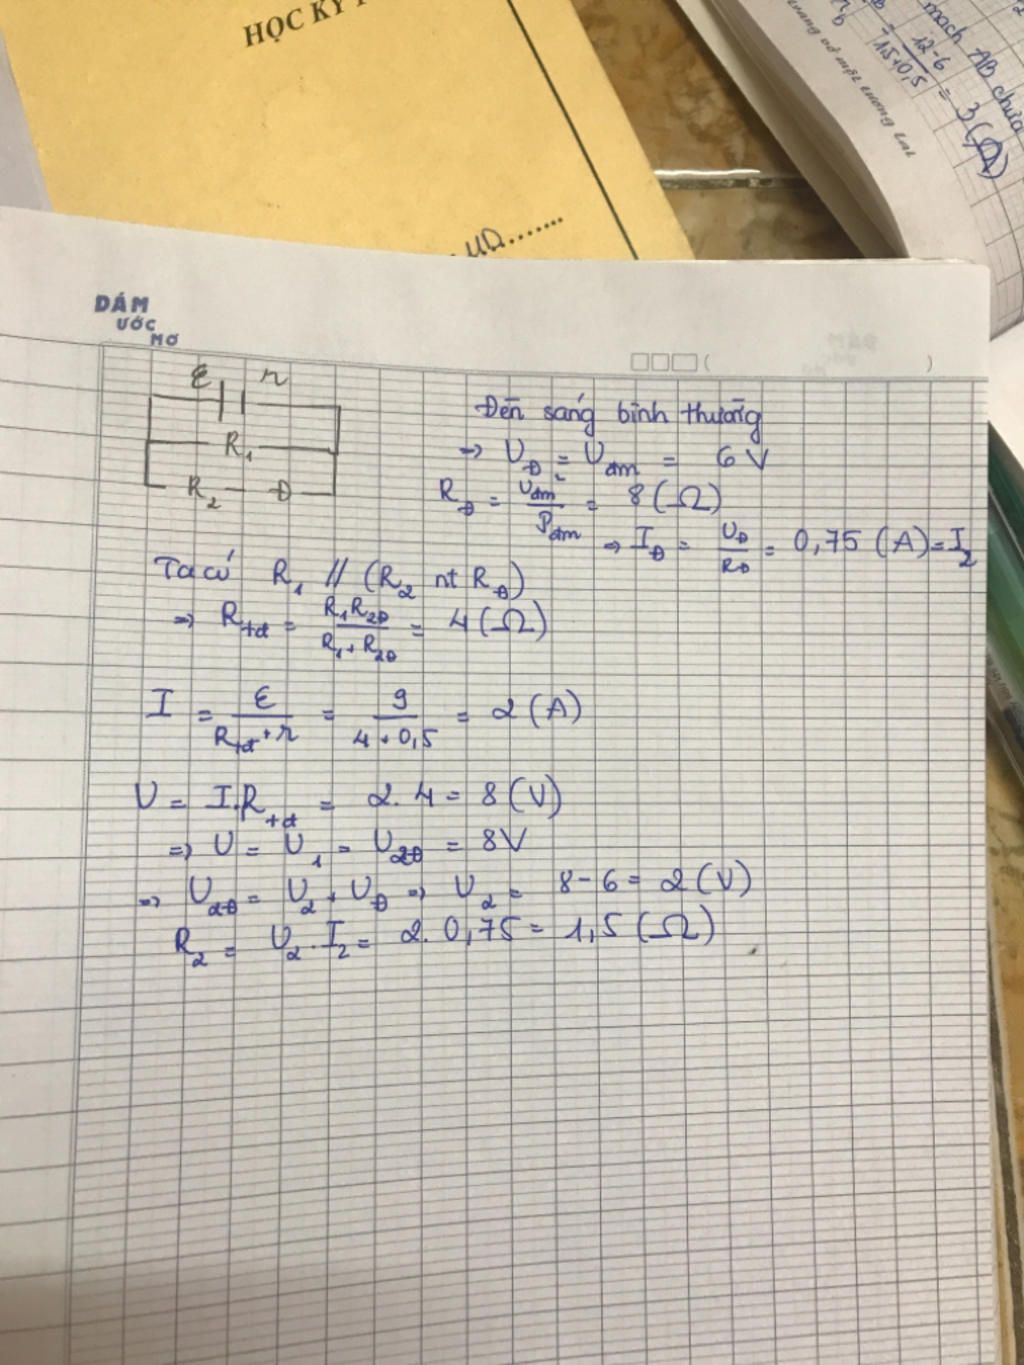 HỌC KỲ
mạch AB chứa
12-6
1,5+0,5
= 3(Ω)
tương lai
DÁM
ƯỚC
MƠ
ε r
R₁
R₂ Đ
Đèn sáng bình thường
=> U_Đ = U_đm = 6 V
R_Đ = U_đm / P_đm = 8 (Ω)
=> I_Đ = U_Đ / R_Đ = 0,75 (A) = I₂
Ta có R₁ // (R₂ nt R_Đ)
=> R_tđ = R₁R₂Đ / R₁ + R₂Đ = 4 (Ω)
I = ε / R_tđ + r = 9 / 4 + 0,5 = 2 (A)
U = I.R_tđ = 2.4 = 8 (V)
=> U = U₁ = U₂Đ = 8V
=> U₂Đ = U₂ + U_Đ => U₂ = 8 - 6 = 2 (V)
R₂ = U₂ . I₂ = 2. 0,75 = 1,5 (Ω)